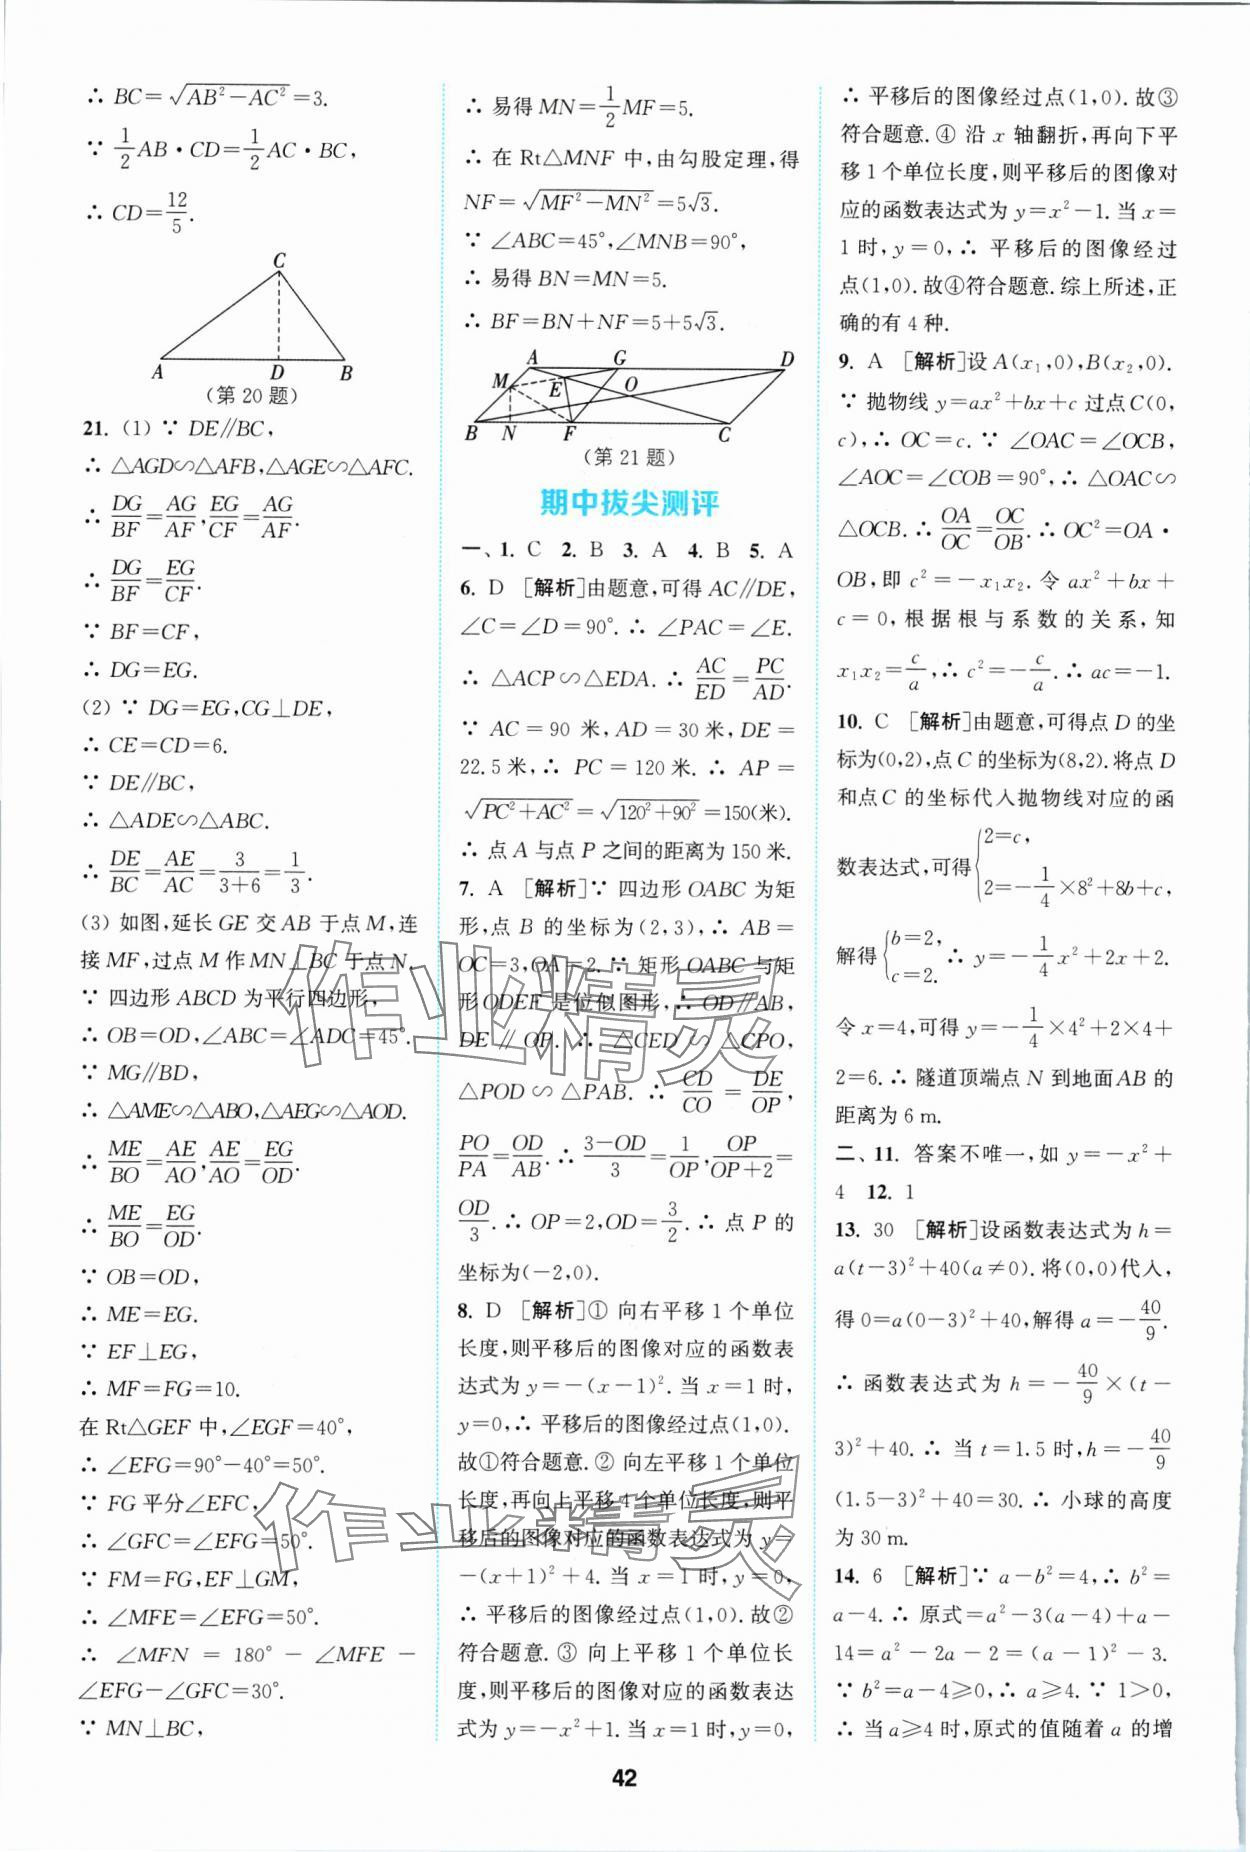 ∴ BC=√(AB²-AC²)=3.
∵ 1/2 AB·CD=1/2 AC·BC,
∴ CD=12/5.
C
A D B
(第20题)
21. (1) ∵ DE∥BC,
∴ △AGD∽△AFB,△AGE∽△AFC.
∴ DG/BF=AG/AF,EG/CF=AG/AF.
∴ DG/BF=EG/CF.
∵ BF=CF,
∴ DG=EG.
(2) ∵ DG=EG,CG⊥DE,
∴ CE=CD=6.
∵ DE∥BC,
∴ △ADE∽△ABC.
∴ DE/BC=AE/AC=3/(3+6)=1/3.
(3) 如图,延长GE交AB于点M,连
接MF,过点M作MN⊥BC于点N.
∵ 四边形ABCD为平行四边形,
∴ OB=OD,∠ABC=∠ADC=45°.
∵ MG∥BD,
∴ △AME∽△ABO,△AEG∽△AOD.
∴ ME/BO=AE/AO,AE/AO=EG/OD.
∴ ME/BO=EG/OD.
∵ OB=OD,
∴ ME=EG.
∵ EF⊥EG,
∴ MF=FG=10.
在Rt△GEF中,∠EGF=40°,
∴ ∠EFG=90°-40°=50°.
∵ FG平分∠EFC,
∴ ∠GFC=∠EFG=50°.
∵ FM=FG,EF⊥GM,
∴ ∠MFE=∠EFG=50°.
∴ ∠MFN = 180° - ∠MFE -
∠EFG-∠GFC=30°.
∵ MN⊥BC,
∴ 易得MN=1/2 MF=5.
∴ 在Rt△MNF中,由勾股定理,得
NF=√(MF²-MN²)=5√3.
∵ ∠ABC=45°,∠MNB=90°,
∴ 易得BN=MN=5.
∴ BF=BN+NF=5+5√3.
A G D
M E O
B N F C
(第21题)
期中拔尖测评
一、1. C 2. B 3. A 4. B 5. A
6. D [解析]由题意,可得AC∥DE,
∠C=∠D=90°.∴ ∠PAC=∠E.
∴ △ACP∽△EDA.∴ AC/ED=PC/AD.
∵ AC=90米,AD=30米,DE=
22.5米,∴ PC=120米.∴ AP=
√(PC²+AC²)=√(120²+90²)=150(米).
∴ 点A与点P之间的距离为150米.
7. A [解析]∵ 四边形OABC为矩
形,点B的坐标为(2,3),∴ AB=
OC=3,OA=2.∵ 矩形OABC与矩
形ODEF是位似图形,∴ OD∥AB,
DE∥OP.∴ △CED∽△CPO,
△POD∽△PAB.∴ CD/CO=DE/OP,
PO/PA=OD/AB.∴ (3-OD)/3=1/OP,OP/(OP+2)=
OD/3.∴ OP=2,OD=3/2.∴ 点P的
坐标为(-2,0).
8. D [解析]① 向右平移1个单位
长度,则平移后的图像对应的函数表
达式为y=-(x-1)².当x=1时,
y=0,∴ 平移后的图像经过点(1,0).
故①符合题意.② 向左平移1个单位
长度,再向上平移4个单位长度,则平
移后的图像对应的函数表达式为y=
-(x+1)²+4.当x=1时,y=0,
∴ 平移后的图像经过点(1,0).故②
符合题意.③ 向上平移1个单位长
度,则平移后的图像对应的函数表达
式为y=-x²+1.当x=1时,y=0,
∴ 平移后的图像经过点(1,0).故③
符合题意.④ 沿x轴翻折,再向下平
移1个单位长度,则平移后的图像对
应的函数表达式为y=x²-1.当x=
1时,y=0,∴ 平移后的图像经过
点(1,0).故④符合题意.综上所述,正
确的有4种.
9. A [解析]设A(x₁,0),B(x₂,0).
∵ 抛物线y=ax²+bx+c过点C(0,
c),∴ OC=c.∵ ∠OAC=∠OCB,
∠AOC=∠COB=90°,∴ △OAC∽
△OCB.∴ OA/OC=OC/OB.∴ OC²=OA·
OB,即c²=-x₁x₂.令ax²+bx+
c=0,根据根与系数的关系,知
x₁x₂=c/a,∴ c²=-c/a.∴ ac=-1.
10. C [解析]由题意,可得点D的坐
标为(0,2),点C的坐标为(8,2).将点D
和点C的坐标代入抛物线对应的函
数表达式,可得{2=c, 2=-1/4×8²+8b+c,
解得{b=2, c=2. ∴ y=-1/4x²+2x+2.
令x=4,可得y=-1/4×4²+2×4+
2=6.∴ 隧道顶端点N到地面AB的
距离为6 m.
二、11. 答案不唯一,如y=-x²+
4 12. 1
13. 30 [解析]设函数表达式为h=
a(t-3)²+40(a≠0).将(0,0)代入,
得0=a(0-3)²+40,解得a=-40/9.
∴ 函数表达式为h=-40/9×(t-
3)²+40.∴ 当t=1.5时,h=-40/9
(1.5-3)²+40=30.∴ 小球的高度
为30 m.
14. 6 [解析]∵ a-b²=4,∴ b²=
a-4.∴ 原式=a²-3(a-4)+a-
14=a²-2a-2=(a-1)²-3.
∵ b²=a-4≥0,∴ a≥4.∵ 1>0,
∴ 当a≥4时,原式的值随着a的增
42
作业精灵
作业精灵